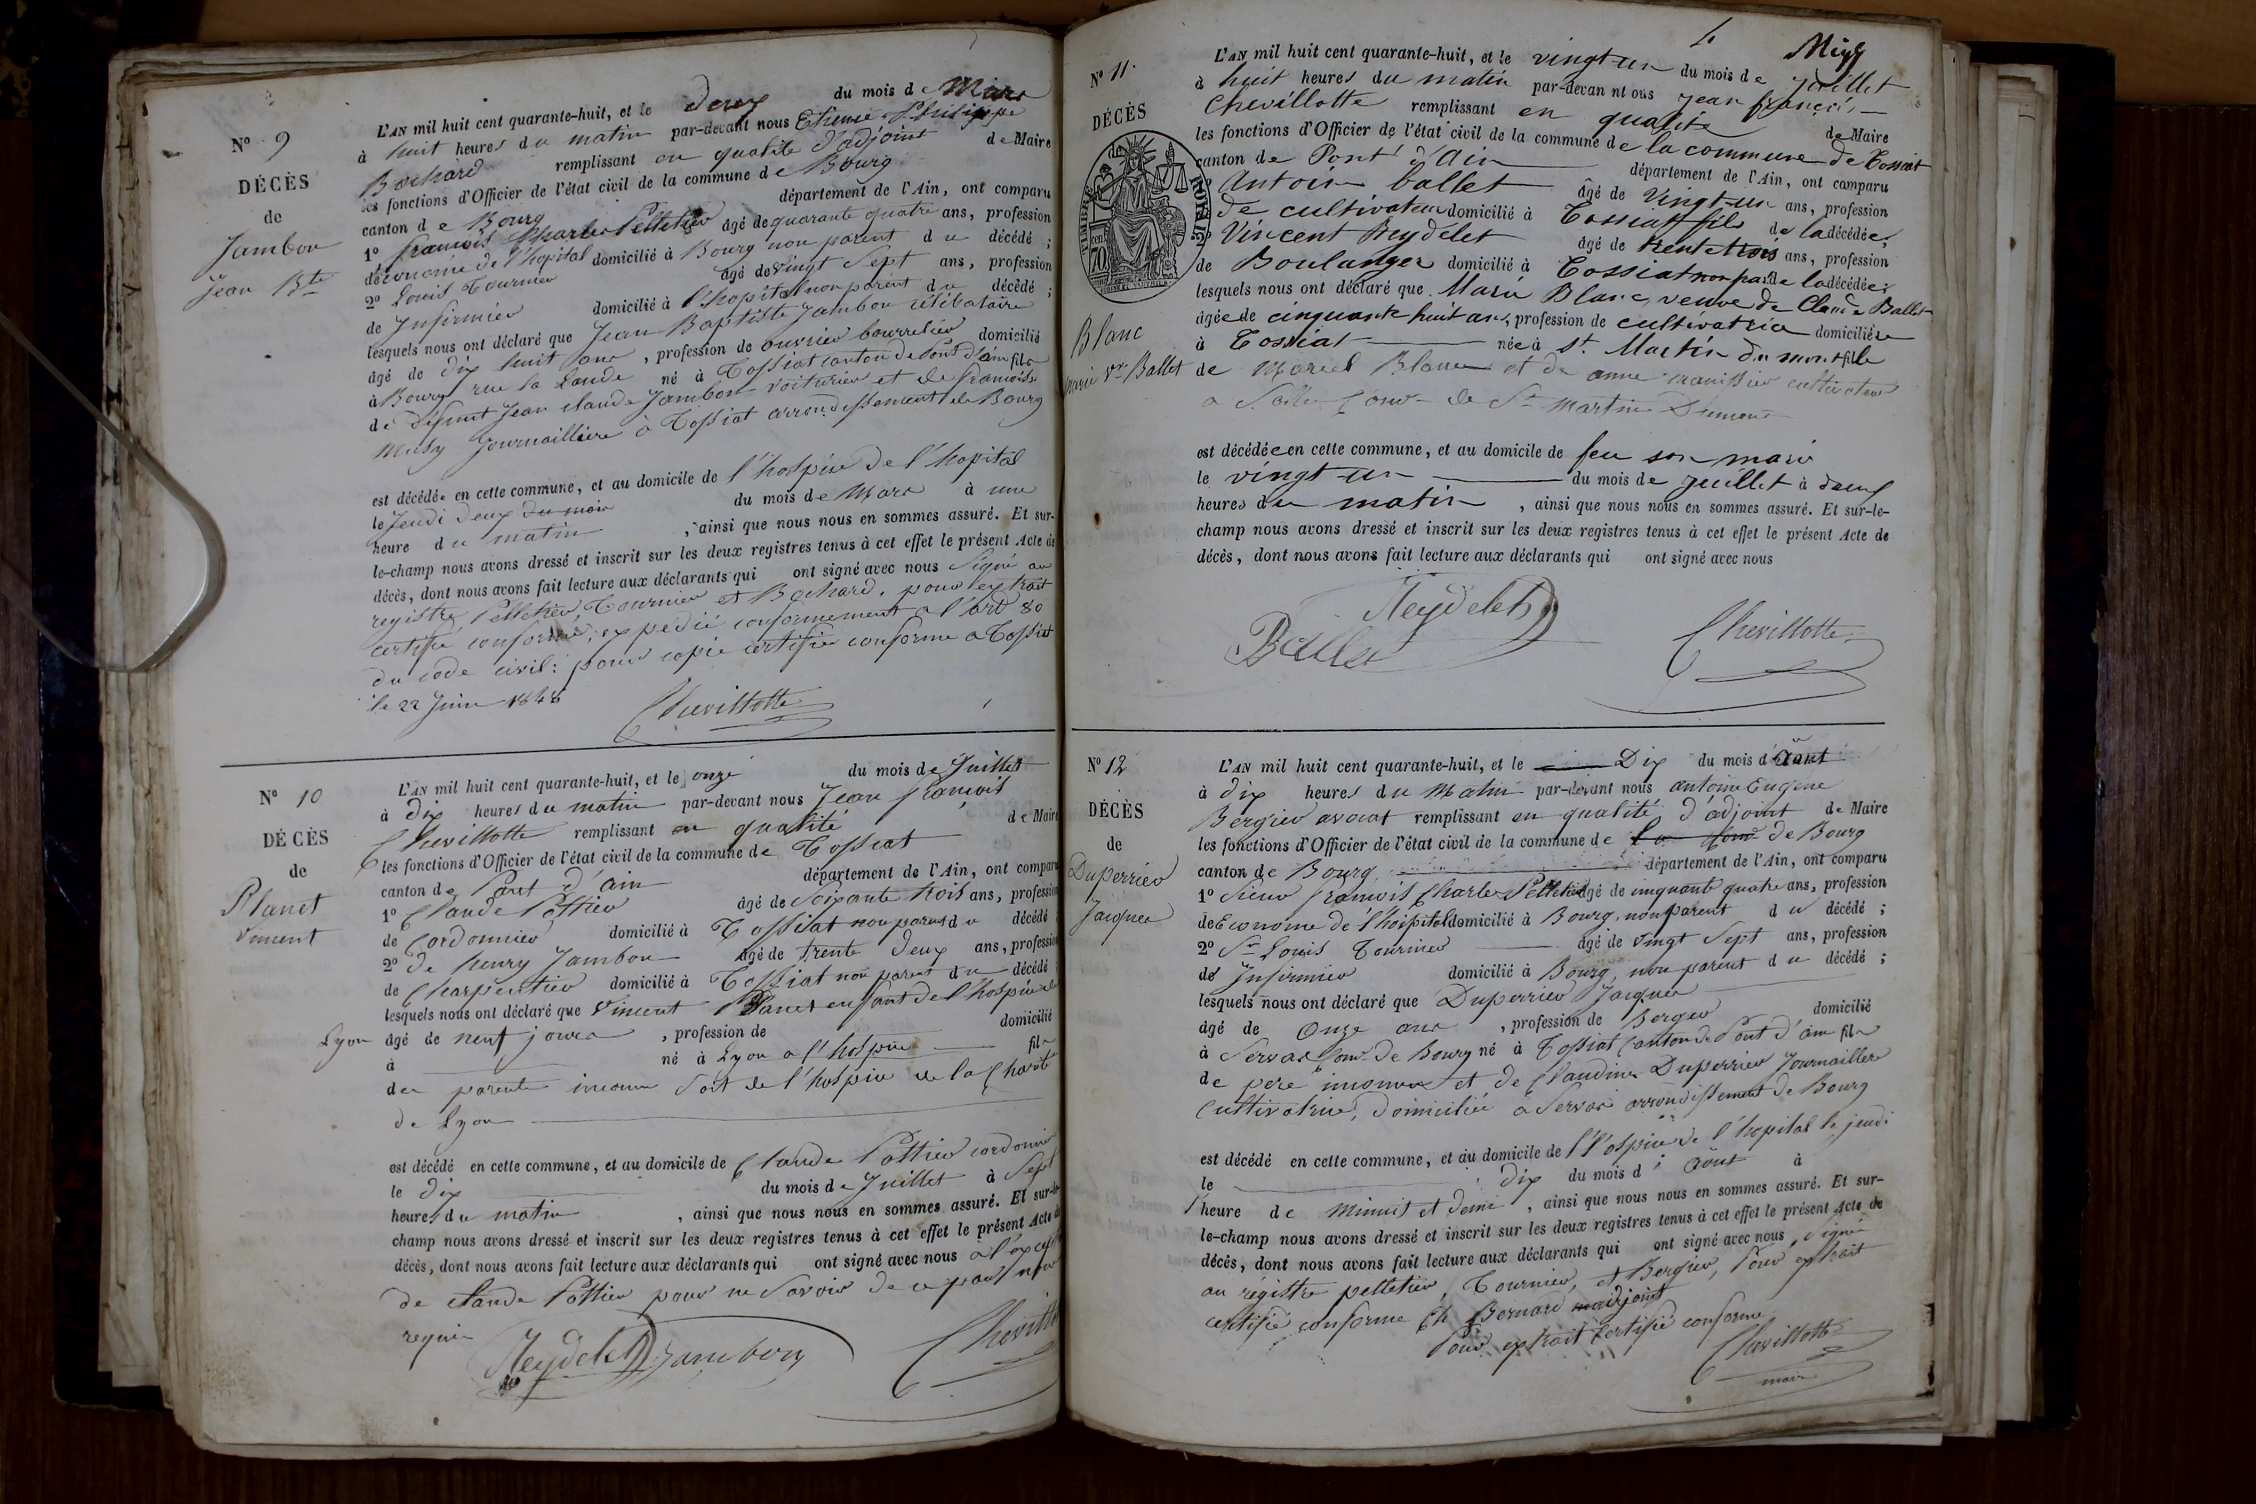 N° 9
DÉCÈS
de
Jambon
Jean Bte
L'AN mil huit cent quarante-huit, et le deux du mois de Mars
à huit heures du matin par-devant nous Etienne Philippe
Bochard remplissant en qualité d'adjoint de Maire
les fonctions d'Officier de l'état civil de la commune de Bourg
canton de Bourg département de l'Ain, ont comparu
1° françois Charles Pelletier âgé de quarante quatre ans, profession
d'économe de l'hopital domicilié à Bourg non parent du décédé ;
2° Louis Tournier âgé de vingt Sept ans, profession
de Infirmier domicilié à l'hopital non parent du décédé ;
lesquels nous ont déclaré que Jean Baptiste Jambon célibataire
âgé de dix huit ans, profession de ouvrier bourrelier domicilié
à Bourg rue la Lande né à Tossiat canton de Pont d'ain fils
de défunt Jean claude Jambon voiturier et de françoise
journaillière à Tossiat arrondissement de Bourg
est décédée en cette commune, et au domicile de l'hospice de l'hopital
le Jeudi deux du mois du mois de Mars à une
heure du matin, ainsi que nous nous en sommes assuré. Et sur-
le-champ nous avons dressé et inscrit sur les deux registres tenus à cet effet le présent Acte de
décès, dont nous avons fait lecture aux déclarants qui ont signé avec nous Signé au
registre Pelletier Tournier et Bochard. pour extrait
certifié conforme, expédié conformement a l'art 80
du code civil: pour copie certifié conforme a Tossiat
le 22 Juin 1848
Chevillotte
N° 10
DÉCÈS
de
Planet
Vincent
Lyon
L'AN mil huit cent quarante-huit, et le onze du mois de Juillet
à dix heures du matin par-devant nous Jean françois
Chevillotte remplissant en qualité de Maire
les fonctions d'Officier de l'état civil de la commune de Tossiat
canton de Pont d'ain département de l'Ain, ont comparu
1° Claude Pottier âgé de soixante trois ans, profession
de Cordonnier domicilié à Tossiat non parent du décédé
2° de henry Jambon âgé de trente deux ans, profession
de Charpentier domicilié à Tossiat non parent du décédé
lesquels nous ont déclaré que Vincent Planet enfant de l'hospice de
âgé de neuf jours, profession de domicilié
à né à Lyon a l'hospice fils
de parents inconnu Soit de l'hospice de la Charité
de Lyon
est décédé en cette commune, et au domicile de Claude Pottier cordonnier
le dix du mois de Juillet à Sept
heures du matin, ainsi que nous nous en sommes assuré. Et sur-le-
champ nous avons dressé et inscrit sur les deux registres tenus à cet effet le présent Acte de
décès, dont nous avons fait lecture aux déclarants qui ont signé avec nous à l'exception
de claude Pottier pour ne Savoir de ce par nous
requis
Neydelet Jambon Chevillotte
4 Miyy
N° 11.
DÉCÈS
de
TIMBRE ROYAL
70
Blanc
marie Ve Ballet
L'AN mil huit cent quarante-huit, et le vingt un du mois de juillet
à huit heures du matin par-devant nous jean françois
Chevillotte remplissant en qualité de Maire
les fonctions d'Officier de l'état civil de la commune de la commune de Tossiat
canton de Pont d'Ain département de l'Ain, ont comparu
Antoine ballet âgé de Vingt-un ans, profession
de cultivateur domicilié à Tossiat fils de la décédée;
Vincent Neydelet âgé de trente trois ans, profession
de Boulanger domicilié à Tossiat non par. de la décédée;
lesquels nous ont déclaré que Marie Blanc, veuve de Claude Ballet
âgée de cinquante huit ans, profession de cultivatrice domiciliée
à Tossiat née à St. Martin du mont fille
de Marcel Blanc et de anne cultivateur
a Salle Comne de St Martin Dumont
est décédée en cette commune, et au domicile de feu son mari
le vingt-un du mois de juillet à deux
heures du matin, ainsi que nous nous en sommes assuré. Et sur-le-
champ nous avons dressé et inscrit sur les deux registres tenus à cet effet le présent Acte de
décès, dont nous avons fait lecture aux déclarants qui ont signé avec nous
Neydelet
Ballet Chevillotte
N° 12
DÉCÈS
de
Duperrier
Jacques
L'AN mil huit cent quarante-huit, et le Dix du mois d'août
à dix heures du Matin par-devant nous antoine Eugene
Bergier avocat remplissant en qualité d'adjoint de Maire
les fonctions d'Officier de l'état civil de la commune de la Comne de Bourg
canton de Bourg département de l'Ain, ont comparu
1° Sieur françois Charles Pelletier âgé de cinquante quatre ans, profession
de Econome de l'hospital domicilié à Bourg, non parent du décédé ;
2° Sr Louis Tournier âgé de vingt Sept ans, profession
de Infirmier domicilié à Bourg, non parent du décédé ;
lesquels nous ont déclaré que Duperrier Jacques
âgé de Onze ans, profession de Berger domicilié
à Servas Comne de Bourg né à Tossiat canton de Pont d'ain fils
de pere inconnu et de Claudine Duperrier Journaillere
Cultivatrice, Domiciliée a Servas arrondissement de Bourg
est décédé en cette commune, et au domicile de l'hospice de l'hopital le jeudi
le dix du mois d'août à
l'heure de Minuit et demi, ainsi que nous nous en sommes assuré. Et sur-
le-champ nous avons dressé et inscrit sur les deux registres tenus à cet effet le présent Acte de
décès, dont nous avons fait lecture aux déclarants qui ont signé avec nous, Signé
au régistre pelletier, Tournier, et Bergier, Pour extrait
certifié conforme Ch Bernard adjoint
Pour extrait certifié conforme
Chevillotte
maire